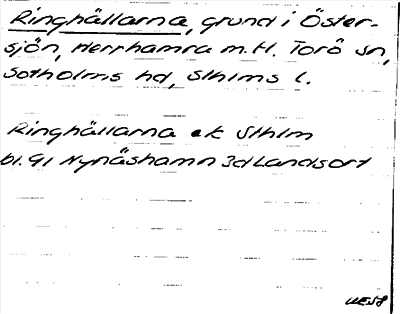 Ringhällarna, grund i Öster-
sjön, Herrhamra m.fl. Torö sn,
Sotholms hd, Sthlms l.
Ringhällarna ek Sthlm
bl. 91 Nynäshamn 3d Landsort